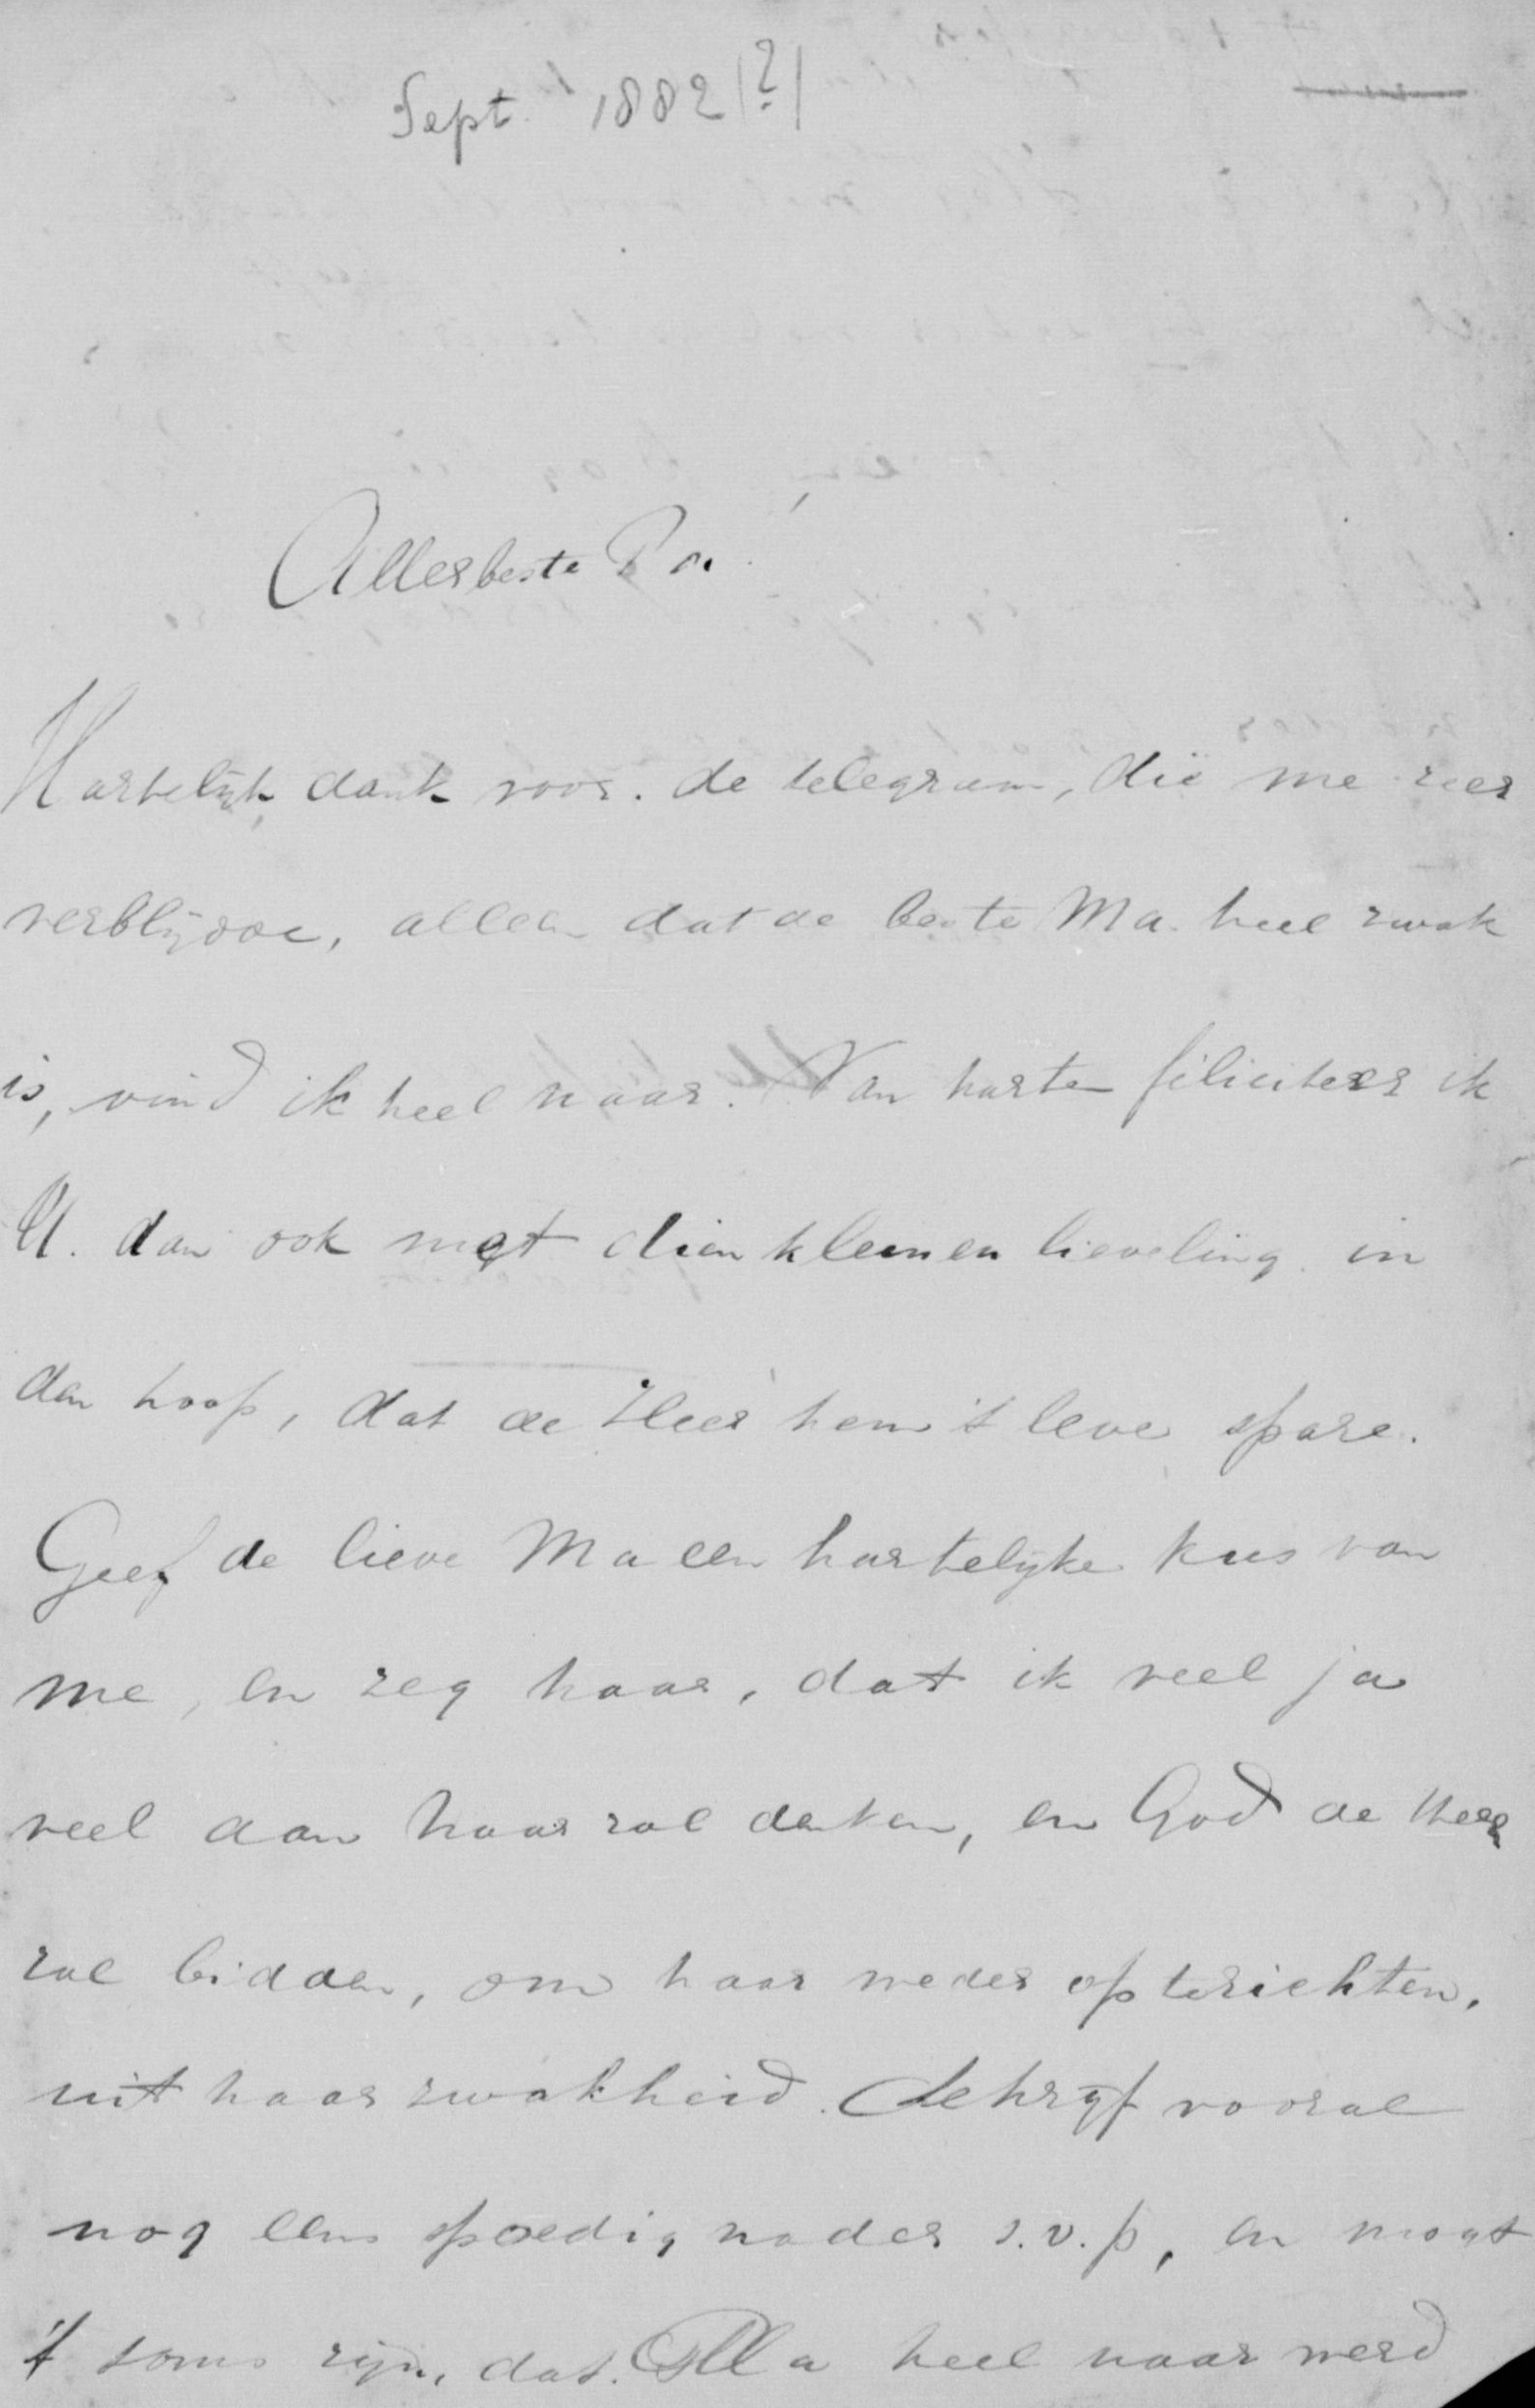 Sept. 1882 (?)
Allerbeste Pa!
Hartelijk dank voor de telegram, die me zeer
verblijdde, alleen dat de beste Ma heel zwak
is, vind ik heel naar. Van harte feliciteer ik
U. dan ook met dien kleinen lieveling in
den hoop, dat de Heer hem 't leve spare.
Geef de lieve Ma een hartelijke kus van
me, en zeg haar, dat ik veel ja
veel aan haar zal denken, en God de Heer
zal bidden, om haar weder opterichten,
uit haar zwakheid. Schrijf vooral
nog eens spoedig nader s.v.p, en mogt
't soms zijn, dat Ma heel naar werd